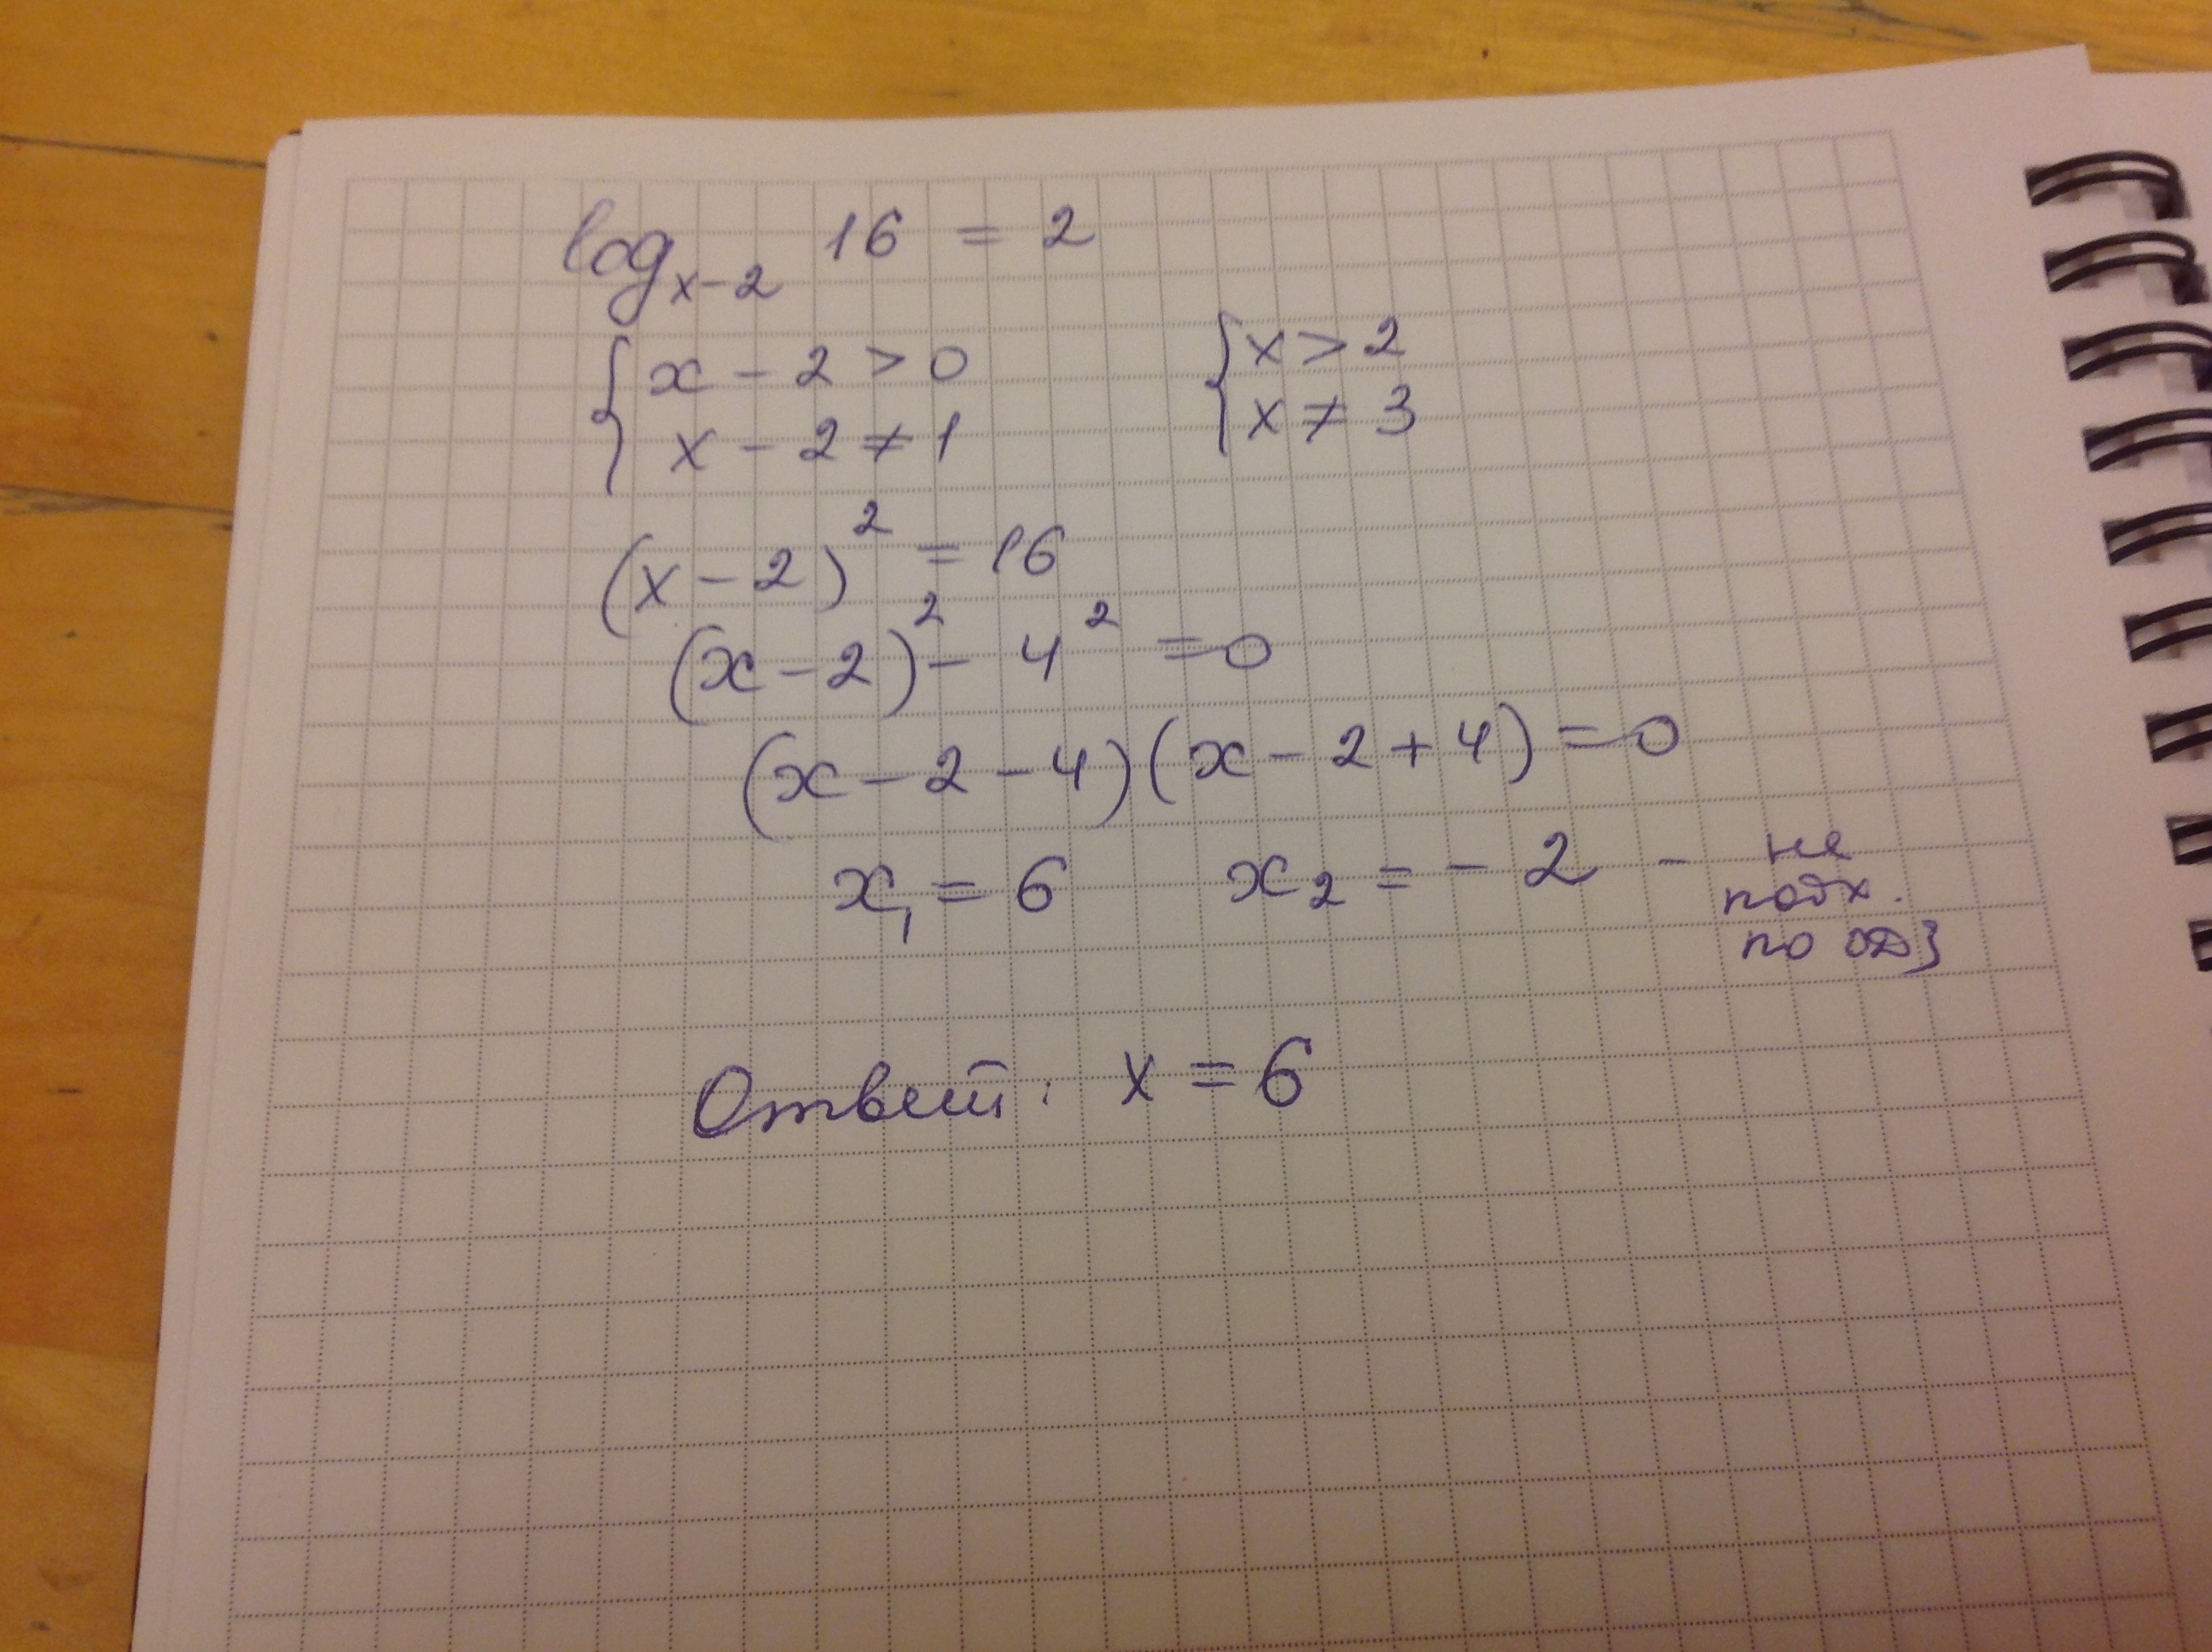 log x-2 16 = 2
{ x - 2 > 0 { x > 2
x - 2 ≠ 1 x ≠ 3
(x - 2)² = 16
(x - 2)² - 4² = 0
(x - 2 - 4)(x - 2 + 4) = 0
x₁ = 6 x₂ = - 2 - не
подх.
по ОДЗ
Ответ: x = 6